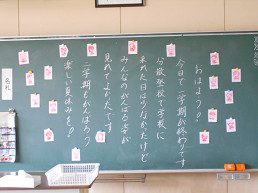 おはよう。
今日で一学期が終わりです
分散登校で学校に
来れた日は少なかったけど
みんなのがんばる姿が
見れてよかったです
二学期もがんばろう
楽しい夏休みを!